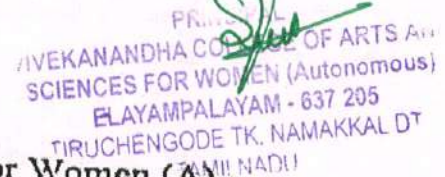 PRINCIPAL
VIVEKANANDHA COLLEGE OF ARTS AND
SCIENCES FOR WOMEN (Autonomous)
ELAYAMPALAYAM - 637 205
TIRUCHENGODE TK. NAMAKKAL DT
TAMILNADU
or Women (A)